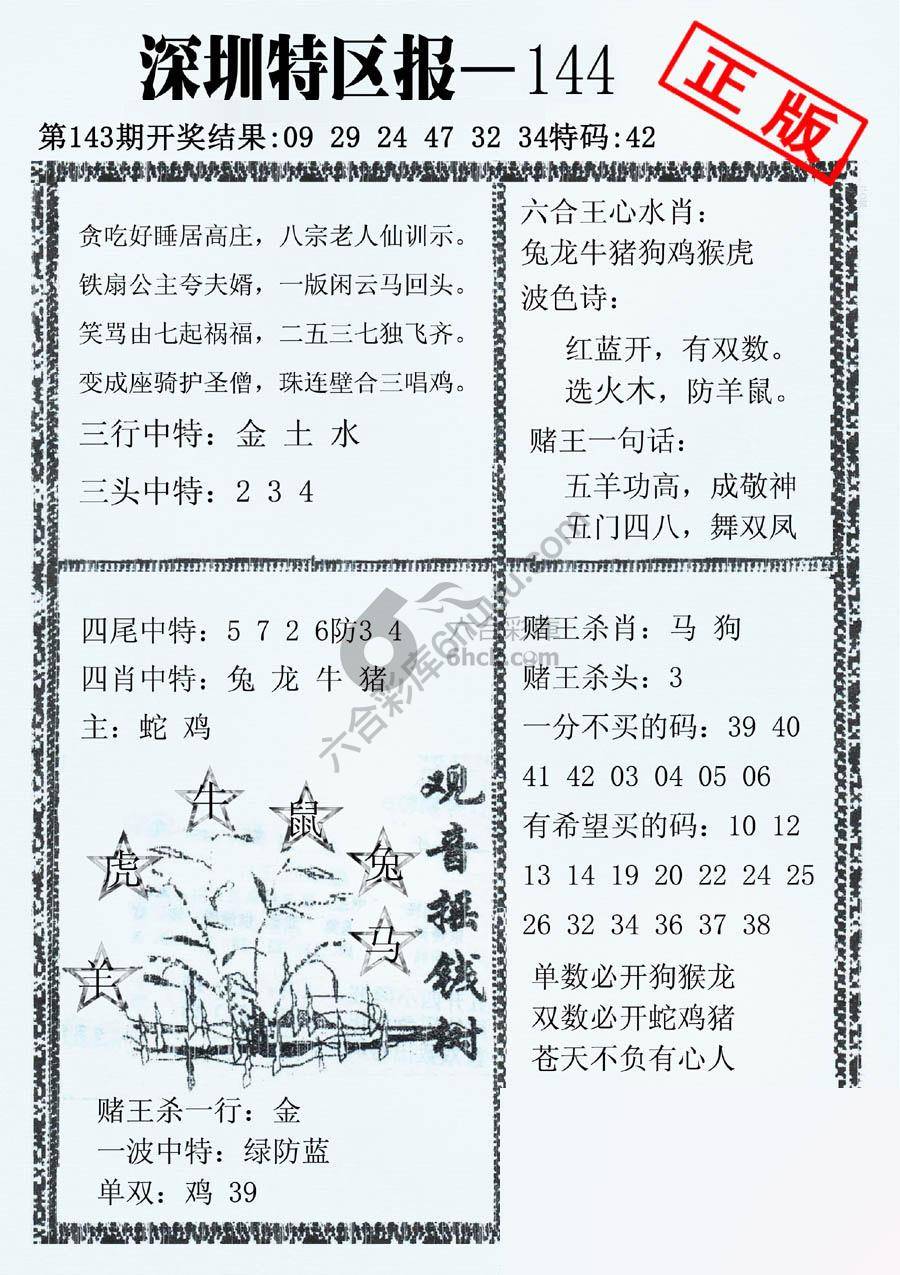 深圳特区报—144
正版
第143期开奖结果:09 29 24 47 32 34特码:42
贪吃好睡居高庄，八宗老人仙训示。
铁扇公主夸夫婿，一版闲云马回头。
笑骂由七起祸福，二五三七独飞齐。
变成座骑护圣僧，珠连璧合三唱鸡。
三行中特：金 土 水
三头中特：2 3 4
六合王心水肖：
兔龙牛猪狗鸡猴虎
波色诗：
红蓝开，有双数。
选火木，防羊鼠。
赌王一句话：
五羊功高，成敬神
五门四八，舞双凤
四尾中特：5 7 2 6防3 4
四肖中特：兔 龙 牛 猪
主：蛇 鸡
牛
鼠
虎
兔
马
羊
观音摇钱树
赌王杀一行：金
一波中特：绿防蓝
单双：鸡 39
赌王杀肖：马 狗
赌王杀头：3
一分不买的码：39 40
41 42 03 04 05 06
有希望买的码：10 12
13 14 19 20 22 24 25
26 32 34 36 37 38
单数必开狗猴龙
双数必开蛇鸡猪
苍天不负有心人
六合彩库6hck.com